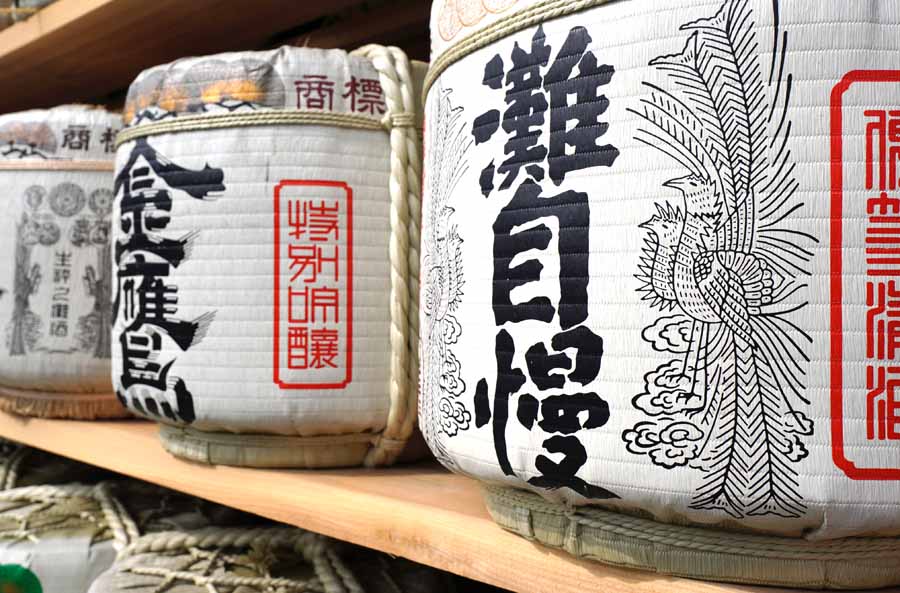 商標
生粋之御酒
商標
金鷹
特別吟醸
灘自慢
清酒